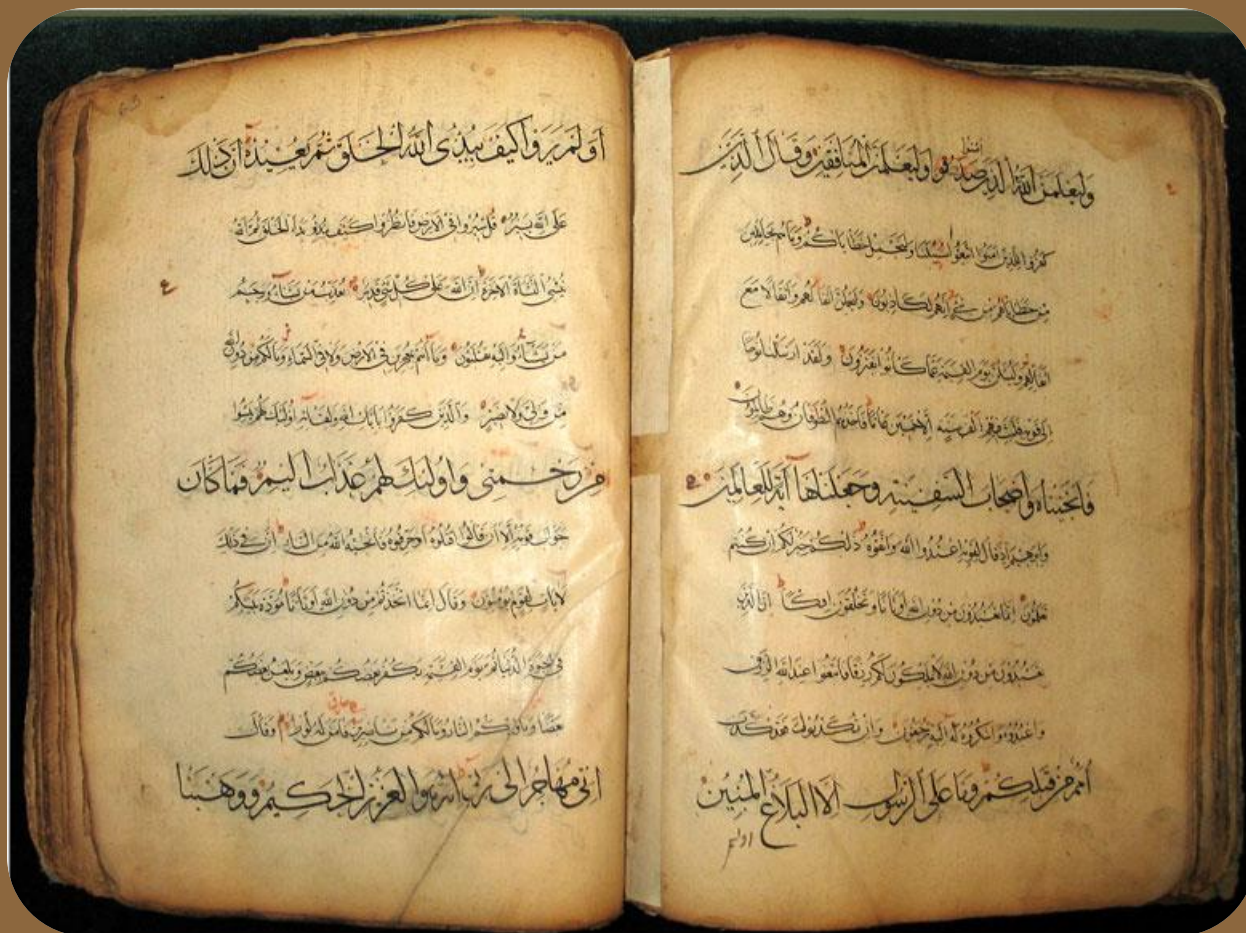 امنوا
وليعلمن الله الذين صدقوا وليعلمن المنافقين وقال الذين
كفروا للذين امنوا اتبعوا سبيلنا ولنحمل خطاياكم وما هم بحاملين
من خطاياهم من شئ انهم لكاذبون وليحملن اثقالهم واثقالا مع
اثقالهم وليسئلن يوم القيمة عما كانوا يفترون ولقد ارسلنا نوحا
الى قومه فلبث فيهم الف سنة الا خمسين عاما فاخذهم الطوفان وهم ظالمون
فانجيناه واصحاب السفينة وجعلناها آية للعالمين
وابرهيم اذ قال لقومه اعبدوا الله واتقوه ذلكم خير لكم ان كنتم
تعلمون انما تعبدون من دون الله اوثانا وتخلقون افكا ان الذين
تعبدون من دون الله لا يملكون لكم رزقا فابتغوا عند الله الرزق
واعبدوه واشكروا له اليه ترجعون وان تكذبوا فقد كذب
امم من قبلكم وما على الرسول الا البلاغ المبين
اولم
اولم يروا كيف يبدئ الله الخلق ثم يعيده ان ذلك
على الله يسير قل سيروا فى الارض فانظروا كيف بدا الخلق ثم الله
ينشئ النشاة الاخرة ان الله على كل شئ قدير يعذب من يشاء ويرحم
من يشاء واليه تقلبون وما انتم بمعجزين فى الارض ولا فى السماء وما لكم من دون الله
من ولى ولا نصير والذين كفروا بايات الله ولقائه اولئك يئسوا
من رحمتى واولئك لهم عذاب اليم فما كان
جواب قومه الا ان قالوا اقتلوه او حرقوه فانجيه الله من النار ان فى ذلك
لايات لقوم يؤمنون وقال انما اتخذتم من دون الله اوثانا مودة بينكم
فى الحيوة الدنيا ثم يوم القيمة يكفر بعضكم ببعض ويلعن بعضكم
بعضا وماويكم النار وما لكم من ناصرين فامن له لوط وقال
انى مهاجر الى ربى انه هو العزيز الحكيم ووهبنا